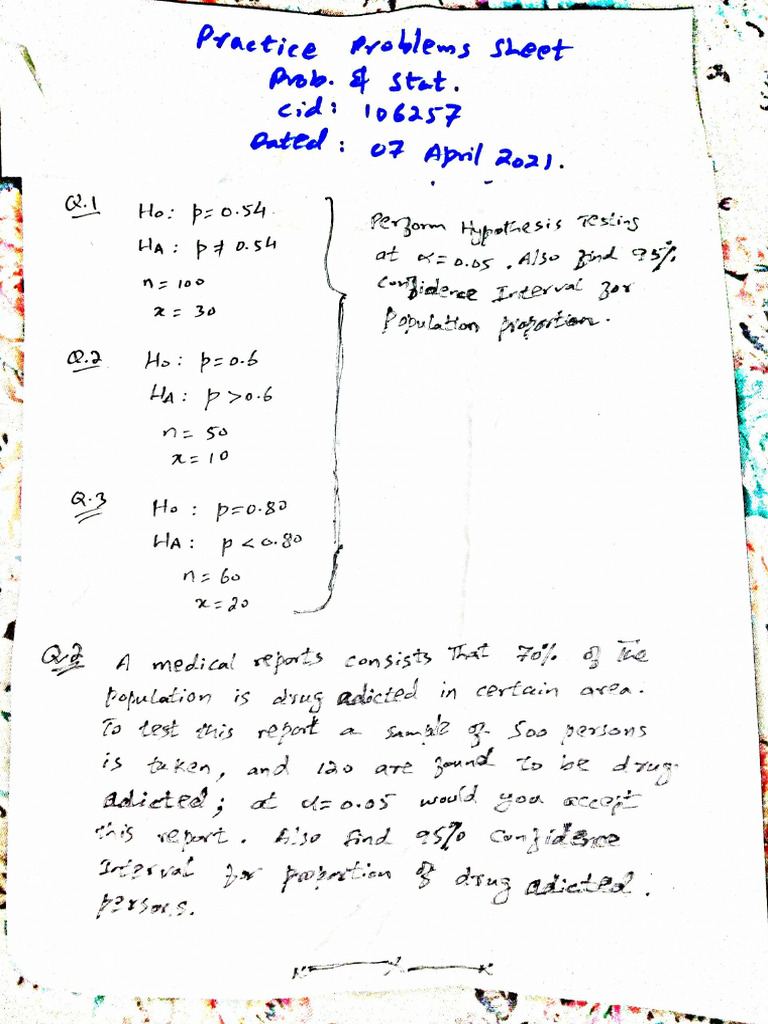 Practice Problems Sheet
Prob. & Stat.
Cid: 106257
Dated: 07 April 2021.
Q.1 H0: p=0.54
HA: p≠0.54
n=100
x=30
Q.2 H0: p=0.6
HA: p>0.6
n=50
x=10
Q.3 H0: p=0.80
HA: p<0.80
n=60
x=20
Perform Hypothesis Testing
at α=0.05. Also find 95%
Confidence Interval for
Population proportion.
Q.2 A medical reports consists That 70% of The
population is drug adicted in certain area.
To test this report a sample of 500 persons
is taken, and 120 are found to be drug
adicted; at α=0.05 would you accept
this report. Also find 95% confidence
Interval for proportion of drug adicted
persons.